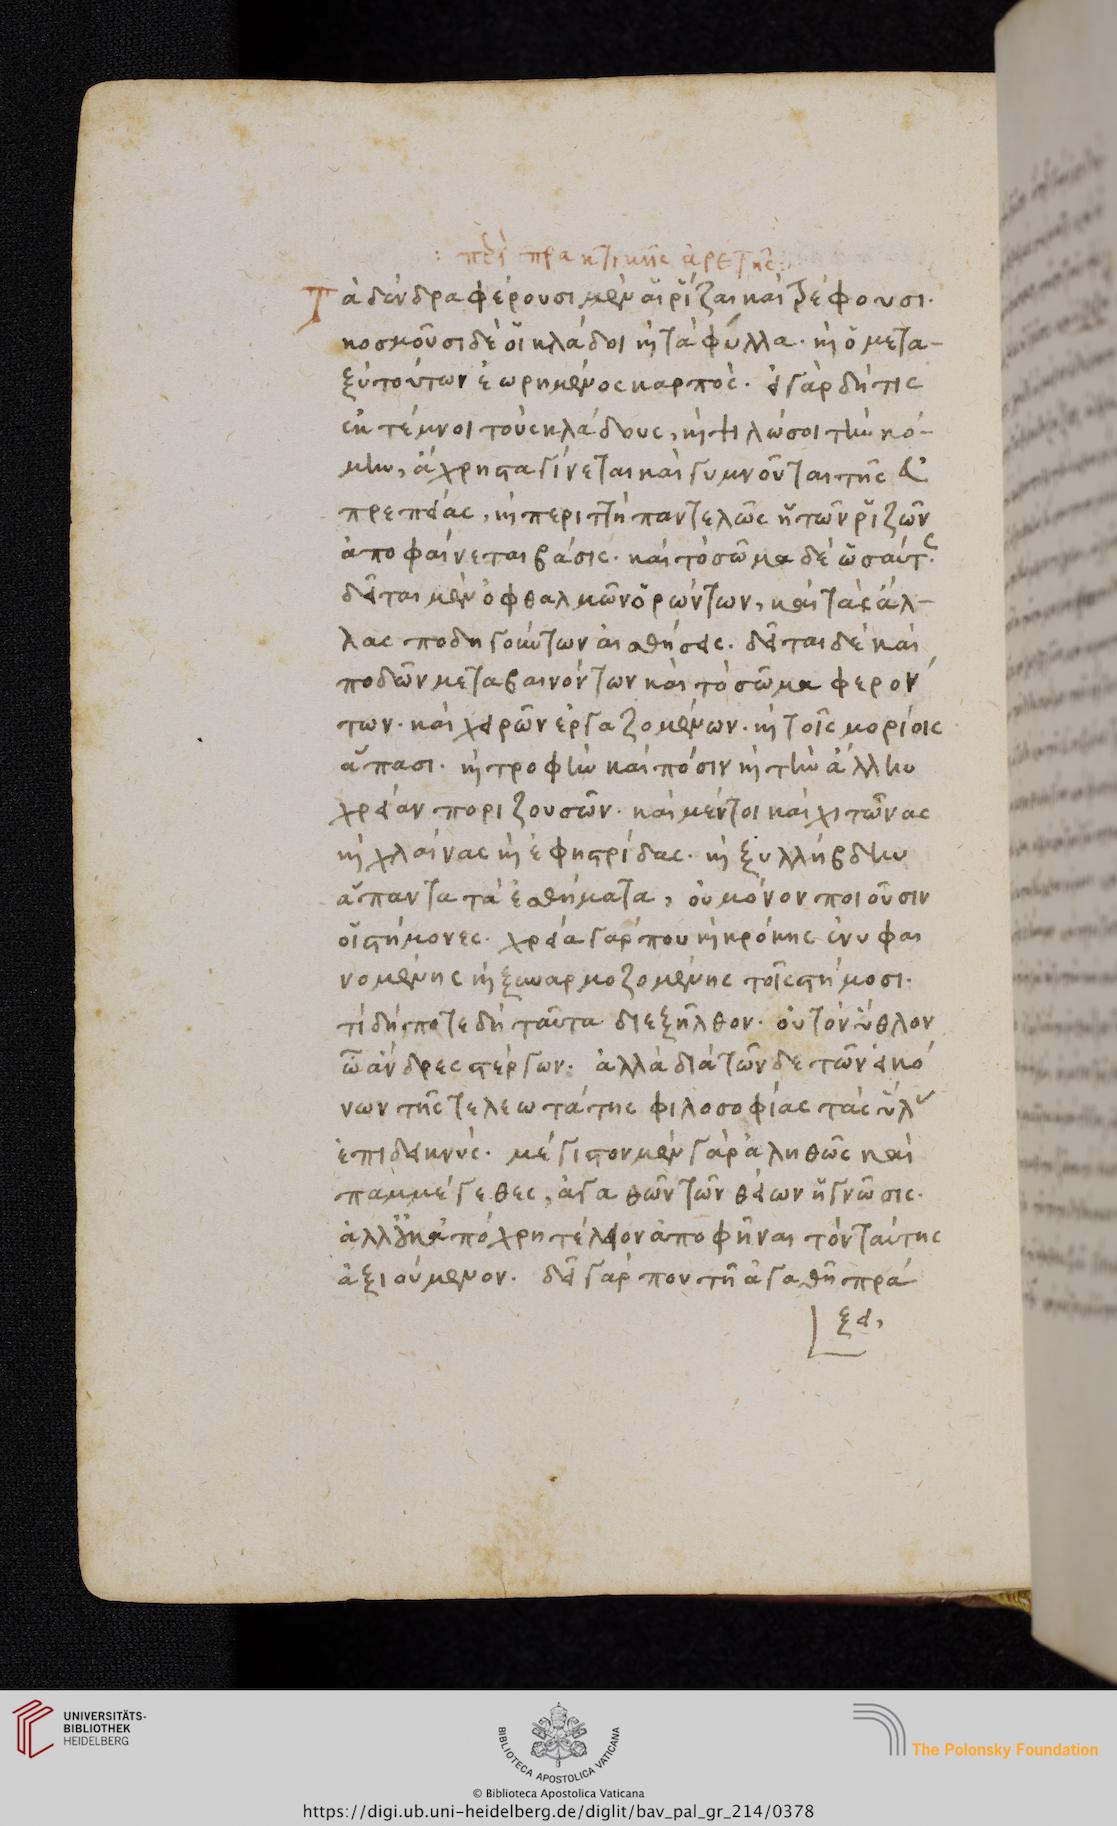 : περὶ πρακτικῆς ἀρετῆς:
Τὰ δένδρα φέρουσι μὲν αἱ ῥίζαι καὶ τρέφουσι·
κοσμοῦσι δὲ οἱ κλάδοι κ̀ τὰ φύλλα· κ̀ ὁ μετα-
ξὺ τούτων ἐωρημένος καρπός· εἰ γὰρ δή τις
ἐκτέμνοι τοὺς κλάδους, κ̀ ψιλώσοι τὴν κό-
μην, ἄχρηστα γίνεται καὶ γυμνοῦνται τῆς εὐ
πρεπείας, κ̀ περιττὴ παντελῶς ἡ τῶν ῥιζῶν
ἀποφαίνεται βάσις· καὶ τὸ σῶμα δὲ ὡσαύτως·
δεῖται μὲν ὀφθαλμῶν ὁρώντων, καὶ τὰς ἄλ-
λας ποδηγούντων αἰσθήσεις· δεῖται δὲ καὶ
ποδῶν μεταβαινόντων καὶ τὸ σῶμα φερόν
των· καὶ χειρῶν ἐργαζομένων· κ̀ τοῖς μορίοις
ἅπασι· κ̀ τροφὴν καὶ πόσιν κ̀ τὴν ἄλλην
χρείαν ποριζουσῶν· καὶ μέντοι καὶ χιτῶνας
κ̀ χλαίνας κ̀ ἐφηστρίδας· κ̀ ξυλλήβδην
ἅπαντα τὰ ἐσθήματα, οὐ μόνον ποιοῦσιν
οἱ στήμονες· χρεία γάρ που κ̀ κρόκης ἐνυφαι
νομένης κ̀ ξυναρμοζομένης τοῖς στήμοσι·
τί δήποτε δὴ ταῦτα διεξῆλθον· οὐ τὸν ὕθλον
ὦ ἄνδρες στέργων· ἀλλὰ διὰ τῶνδε τῶν εἰκό
νων τῆς τελεωτάτης φιλοσοφίας τὰς ὕλ
ἐπιδεικνύς· μέγιστον μὲν γὰρ ἀληθῶς καὶ
παμμέγεθες, ἀγαθῶν τῶν θείων ἡ γνῶσις·
ἀλλ' οὐκ ἀπόχρη τέλειον ἀποφῆναι τὸν ταύτης
ἀξιούμενον· δεῖ γάρ που τῇ ἀγαθῇ πρά
ξει,
UNIVERSITÄTS-
BIBLIOTHEK
HEIDELBERG
BIBLIOTECA APOSTOLICA VATICANA
The Polonsky Foundation
© Biblioteca Apostolica Vaticana
https://digi.ub.uni-heidelberg.de/diglit/bav_pal_gr_214/0378